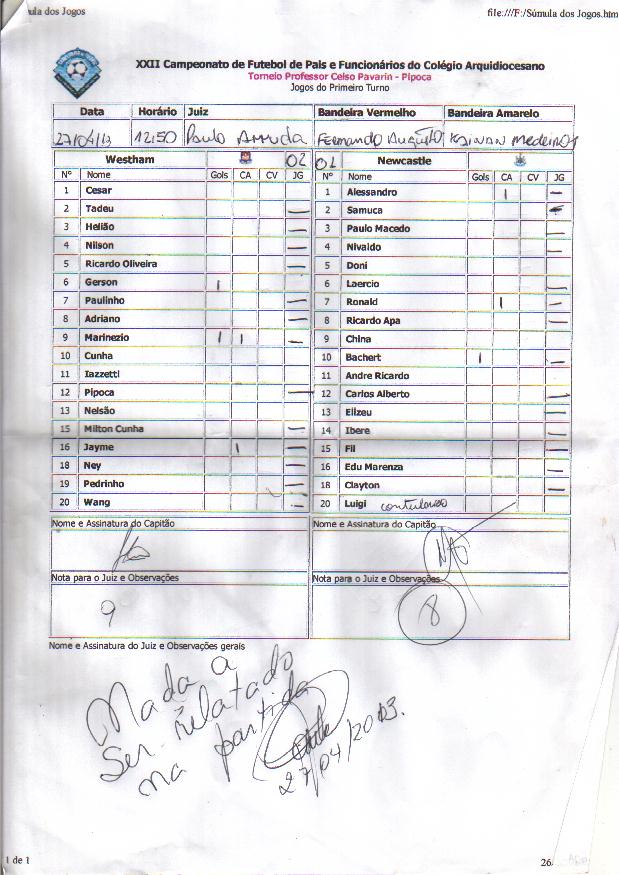 ula dos Jogos file:///F:/Súmula dos Jogos.htm
XXII Campeonato de Futebol de Pais e Funcionários do Colégio Arquidiocesano
Torneio Professor Celso Pavarin - Pipoca
Jogos do Primeiro Turno
Data Horário Juiz Bandeira Vermelho Bandeira Amarelo
27/04/13 12:50 Paulo Arruda Fernando Augusto Kainan Medeiros
Westham 02 01 Newcastle
Nº Nome Gols CA CV JG Nº Nome Gols CA CV JG
1 Cesar 1 Alessandro I —
2 Tadeu — 2 Samuca —
3 Helião — 3 Paulo Macedo —
4 Nilson — 4 Nivaldo —
5 Ricardo Oliveira — 5 Doni
6 Gerson I 6 Laercio —
7 Paulinho — 7 Ronald I —
8 Adriano — 8 Ricardo Apa —
9 Marinezio I I — 9 China
10 Cunha 10 Bachert I —
11 Iazzetti 11 Andre Ricardo
12 Pipoca — 12 Carlos Alberto —
13 Nelsão 13 Elizeu —
15 Milton Cunha — 14 Ibere —
16 Jayme I — 15 Fil —
18 Ney — 16 Edu Marenza —
19 Pedrinho — 18 Clayton —
20 Wang — 20 Luigi contundido
Nome e Assinatura do Capitão Nome e Assinatura do Capitão
Nota para o Juiz e Observações Nota para o Juiz e Observações
9 8
Nome e Assinatura do Juiz e Observações gerais
Nada a
Ser relatado
na partida
27/04/2013.
1 de 1 26